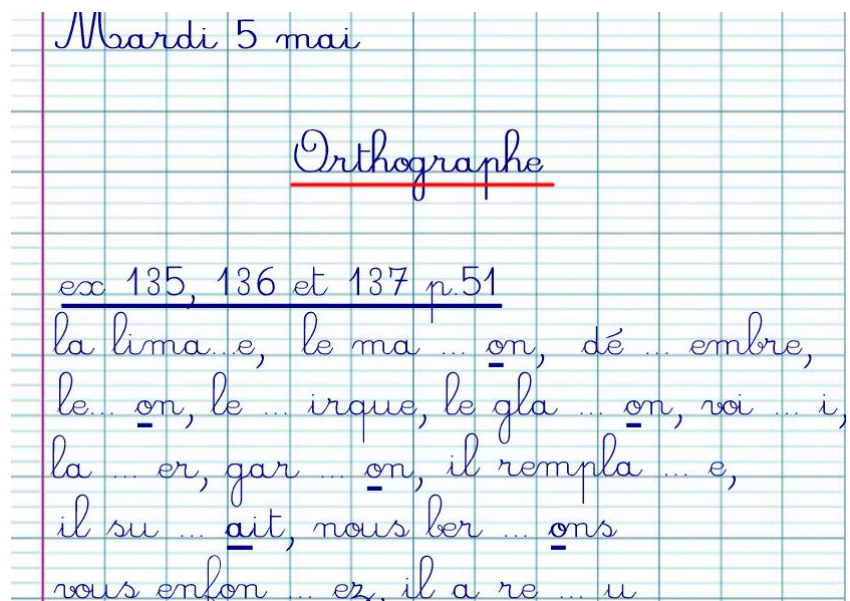 Mardi 5 mai
Orthographe
ex 135, 136 et 137 p.51
la lima...e, le ma ... on, dé ... embre,
le... on, le ... irque, le gla ... on, voi ... i,
la ... er, gar ... on, il rempla ... e,
il su ... ait, nous ber ... ons
vous enfon ... ez, il a re ... u